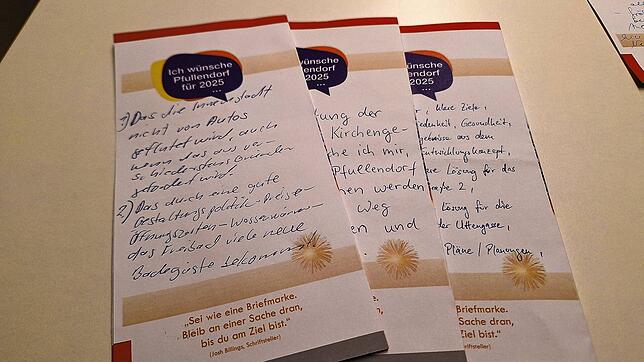 Ich wünsche
Pfullendorf
für 2025
...
1) Das die Innenstadt
nicht von Autos
geflutet wird, auch
wenn das aus ver-
schiedensten Gründen
gefordert wird.
2) Das durch eine gute
Gestaltungspolitik-Preise-
Öffnungszeiten-Wasserwärme-
das Freibad viele neue
Badegäste bekommt.
„Sei wie eine Briefmarke.
Bleib an einer Sache dran,
bis du am Ziel bist."
(Josh Billings, Schriftsteller)
h wünsche
fullendorf
ür 2025
...
ung der
Kirchenge-
he ich mir,
Pfullendorf
nen werden
Weg
en und
e Briefmarke.
er Sache dran,
Ziel bist."
, Schriftsteller)
wünsche
llendorf
2025
...
r, klare Ziele,
edenheit, Gesundheit,
gebnisse aus dem
Entwicklungskonzept,
e Lösung für das
aße 2,
Lösung für die
der Uttengasse,
Pläne / Planungen,
Briefmarke.
Sache dran,
iel bist."
chriftsteller)